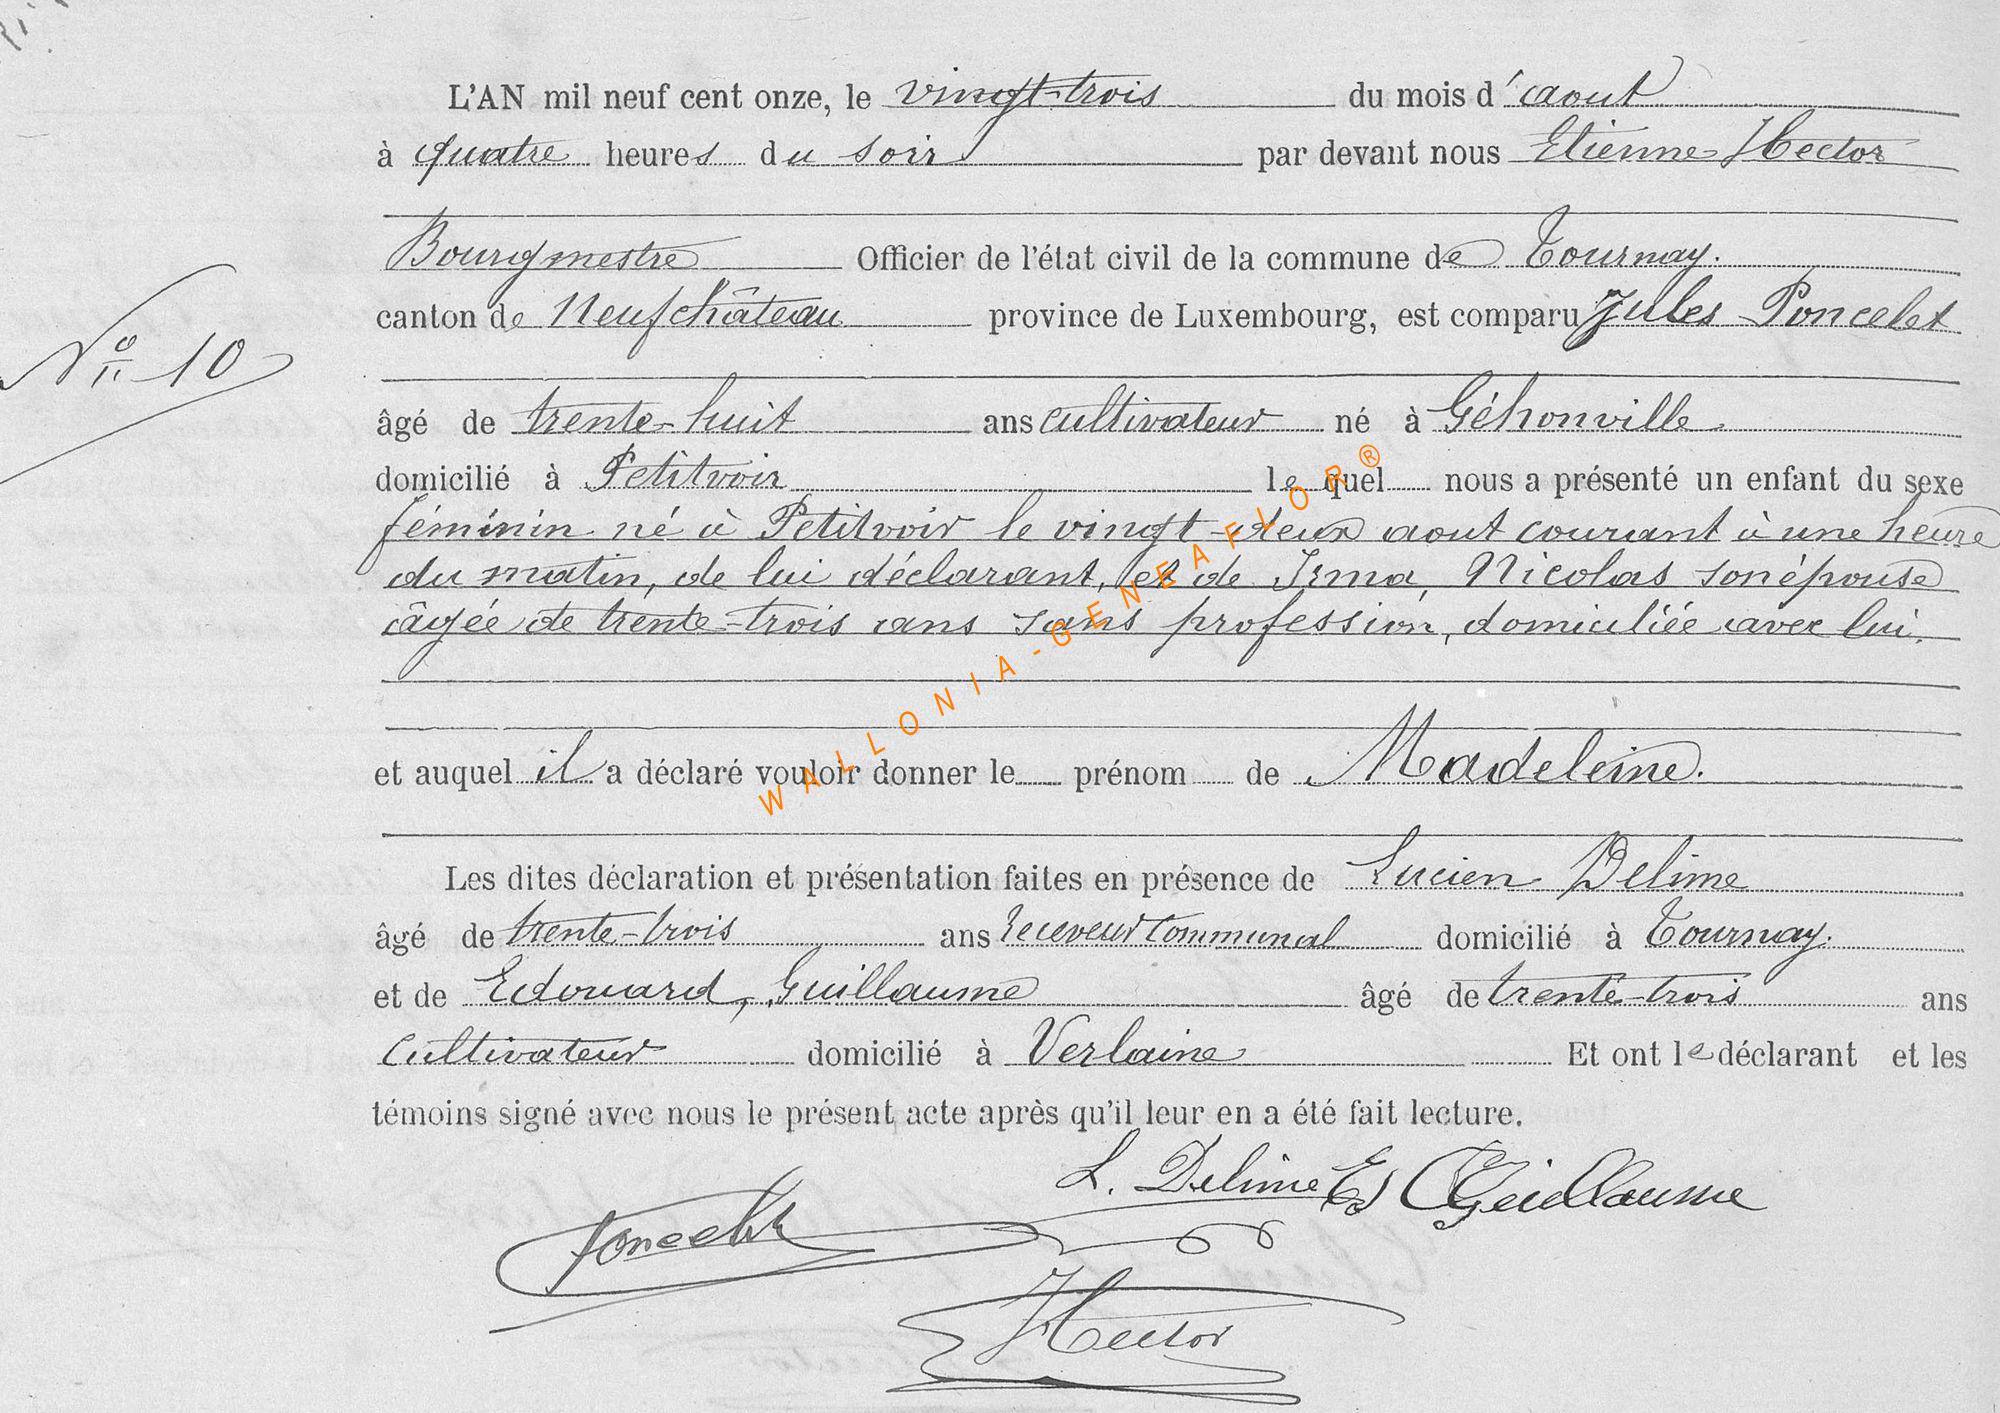 L'AN mil neuf cent onze, le vingt-trois du mois d'aout
à quatre heures du soir par devant nous Etienne Hector
Bourgmestre Officier de l'état civil de la commune de Tournay.
canton de Neufchâteau province de Luxembourg, est comparu Jules Poncelet
N° 10
âgé de trente-huit ans cultivateur né à Géhonville.
domicilié à Petitvoir le quel nous a présenté un enfant du sexe
féminin né à Petitvoir le vingt-deux aout courant à une heure
du matin, de lui déclarant, et de Irma, Nicolas son épouse
âgée de trente-trois ans sans profession, domiciliée avec lui.
et auquel il a déclaré vouloir donner le prénom de Madeleine.
Les dites déclaration et présentation faites en présence de Lucien Delime
âgé de trente-trois ans receveur communal domicilié à Tournay.
et de Edouard, Guillaume âgé de trente-trois ans
cultivateur domicilié à Verlaine Et ont le déclarant et les
témoins signé avec nous le présent acte après qu'il leur en a été fait lecture.
L. Delime Ed Guillaume
Poncelet
Hector
WALLONIA-GENEAFLOR®